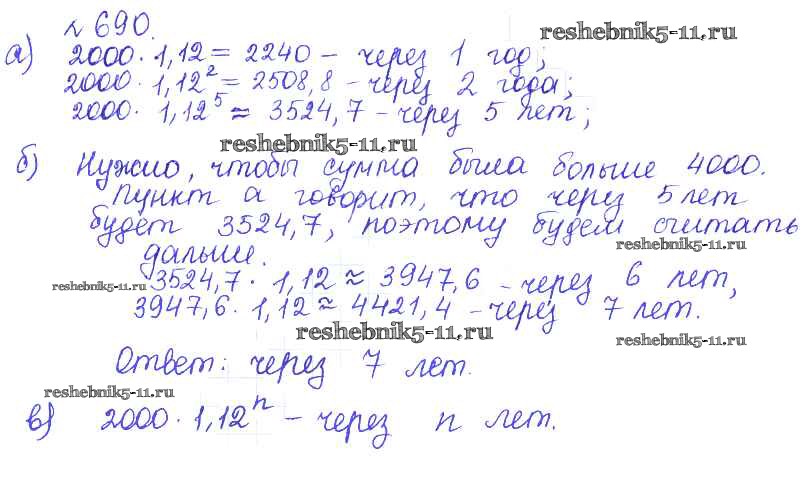 № 690.
reshebnik5-11.ru
а) 2000 · 1,12 = 2240 - через 1 год;
2000 · 1,12² = 2508,8 - через 2 года;
2000 · 1,12⁵ ≈ 3524,7 - через 5 лет;
reshebnik5-11.ru
б) Нужно, чтобы сумма была больше 4000.
Пункт а говорит, что через 5 лет
будет 3524,7, поэтому будем считать
дальше.
reshebnik5-11.ru
3524,7 · 1,12 ≈ 3947,6 - через 6 лет,
reshebnik5-11.ru
3947,6 · 1,12 ≈ 4421,4 - через 7 лет.
reshebnik5-11.ru
reshebnik5-11.ru
Ответ: через 7 лет.
reshebnik5-11.ru
в) 2000 · 1,12ⁿ - через n лет.